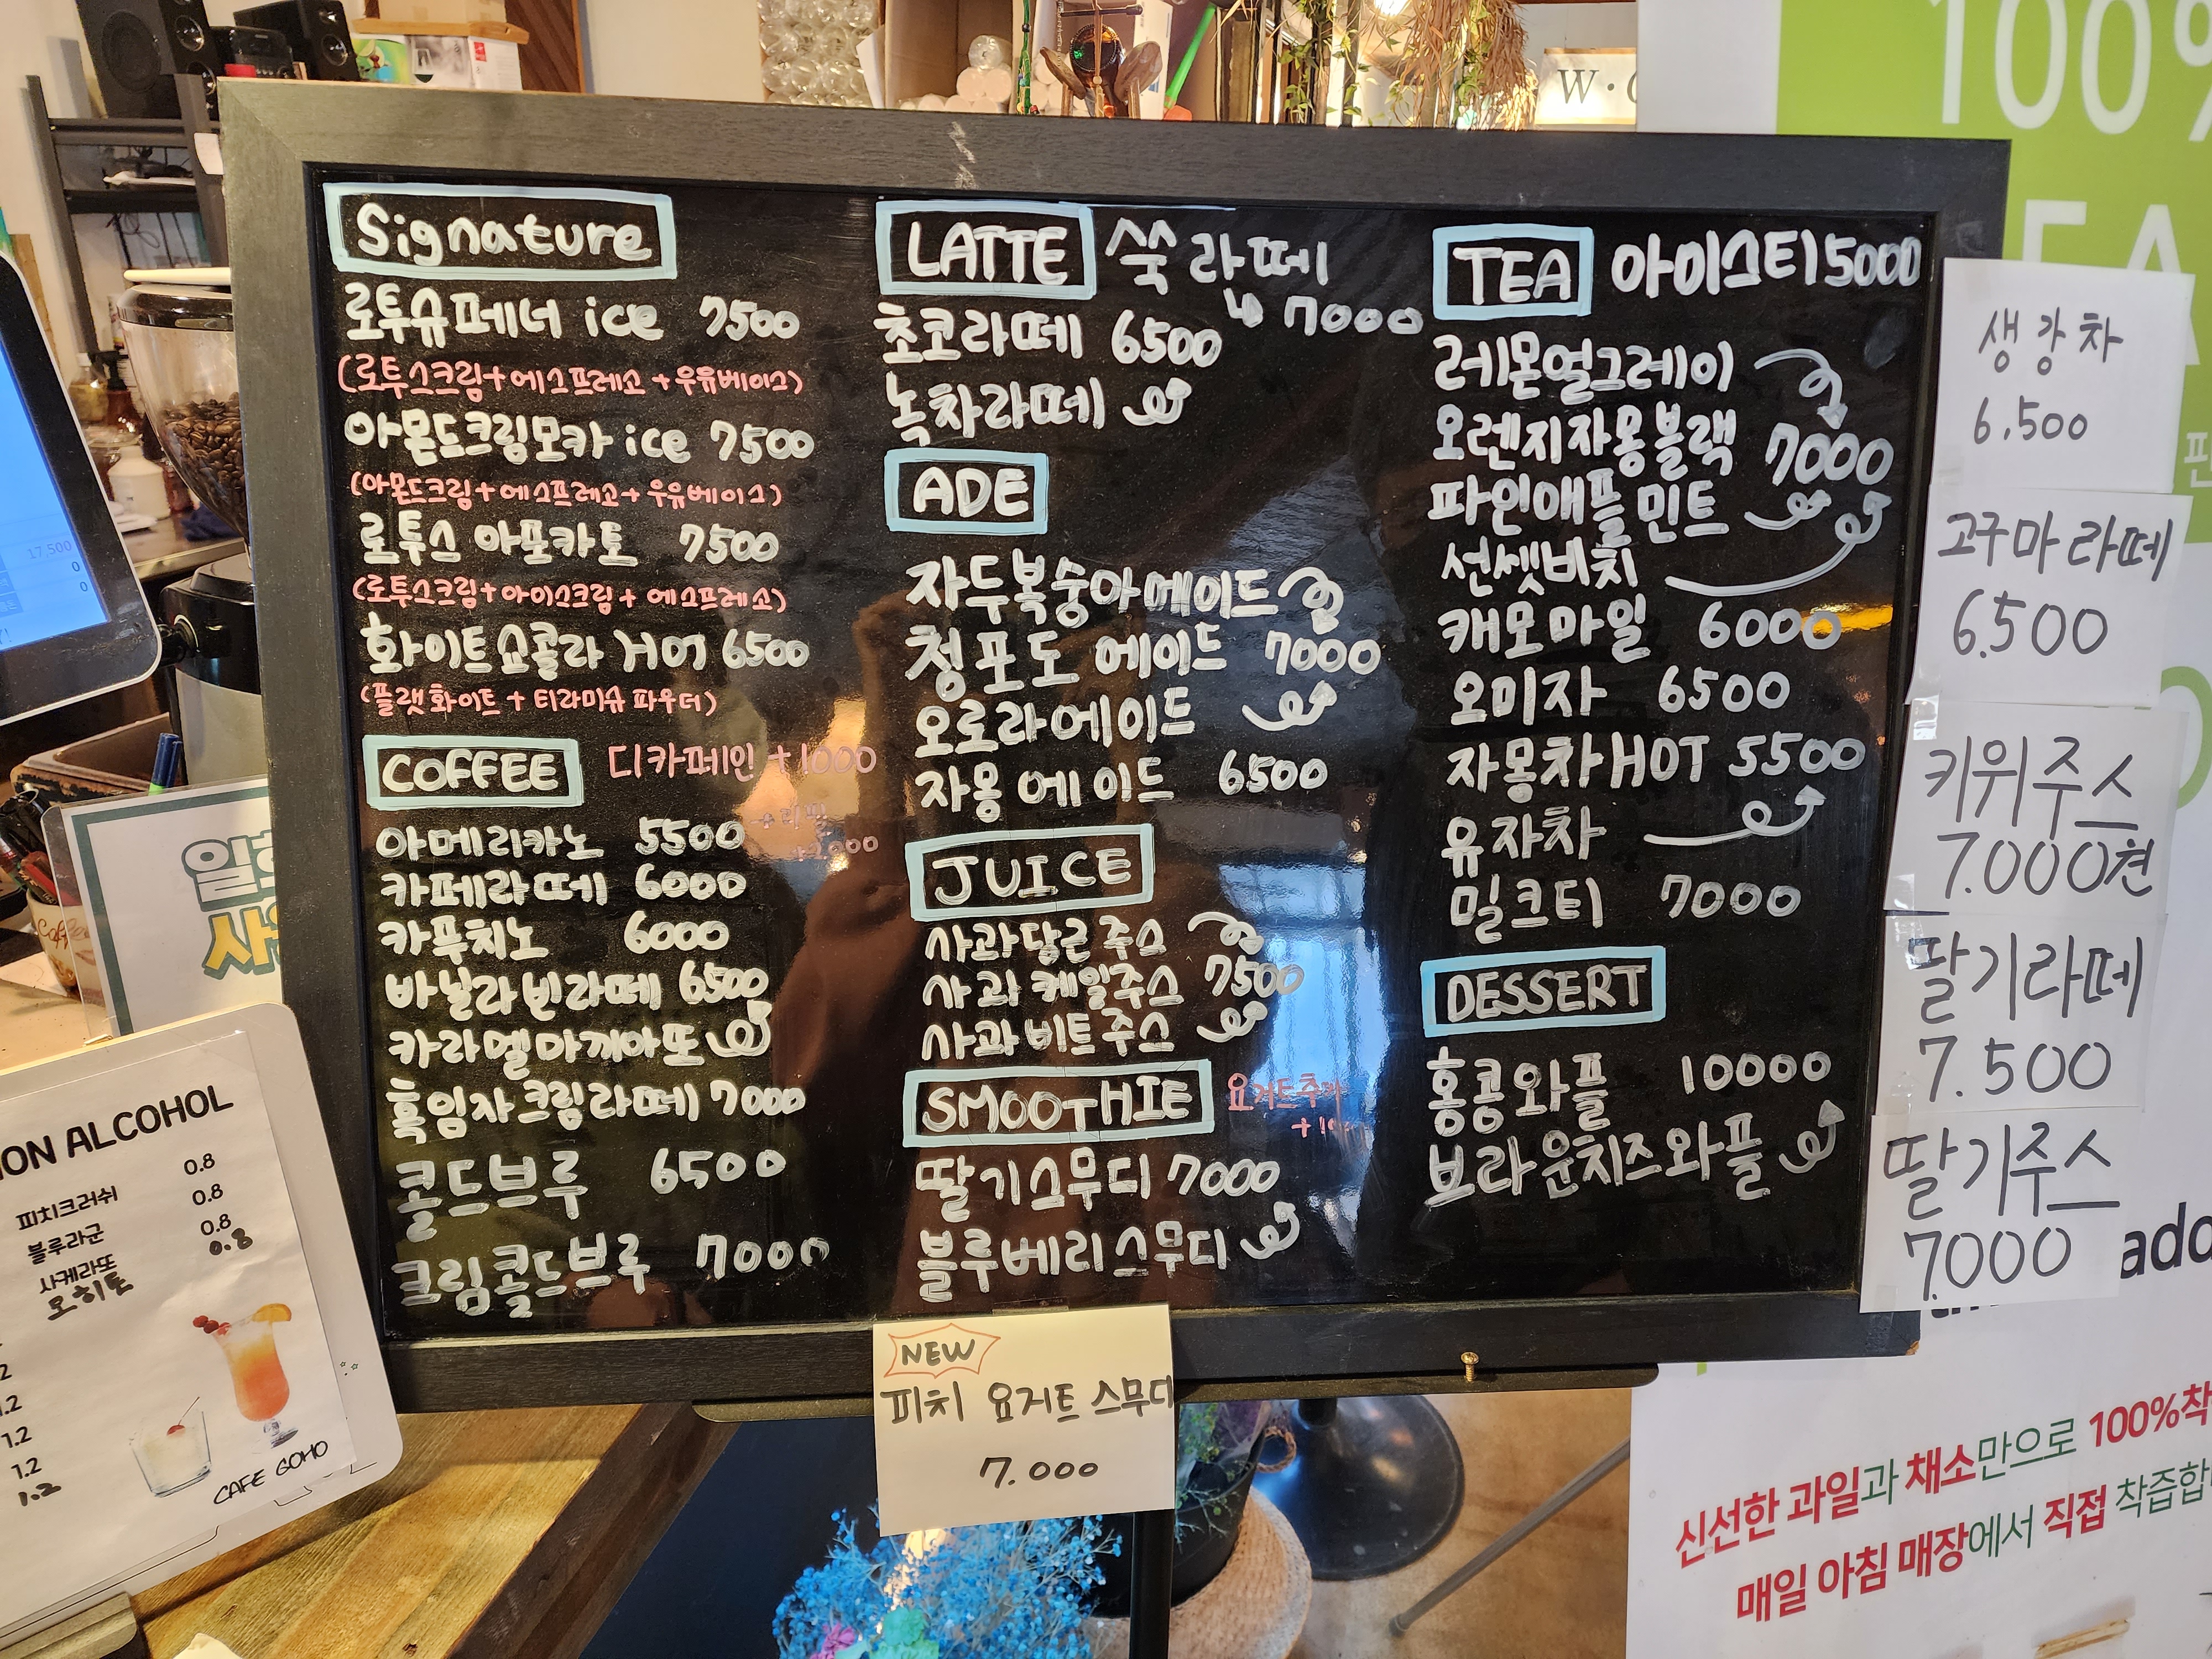 Signature
로투슈페너 ice 7500
(로투스크림+에스프레소+우유베이스)
아몬드크림모카 ice 7500
(아몬드크림+에스프레소+우유베이스)
로투스 아포카토 7500
(로투스크림+아이스크림+에스프레소)
화이트쇼콜라 HOT 6500
(플랫화이트+티라미슈 파우더)
COFFEE 디카페인 +1000
아메리카노 5500
카페라떼 6000
카푸치노 6000
바닐라빈라떼 6500
카라멜마끼아또
흑임자크림라떼 7000
콜드브루 6500
크림콜드브루 7000
LATTE 쑥라떼
↳ 7000
초코라떼 6500
녹차라떼
ADE
자두복숭아에이드
청포도 에이드 7000
오로라에이드
자몽에이드 6500
JUICE
사과당근주스
사과케일주스 7500
사과비트주스
SMOOTHIE 요거트추가
딸기스무디 7000
블루베리스무디
TEA 아이스티 5000
레몬얼그레이
오렌지자몽블랙 7000
파인애플민트
선셋비치
캐모마일 6000
오미자 6500
자몽차 HOT 5500
유자차
밀크티 7000
DESSERT
홍콩와플 10000
브라운치즈와플
생강차
6,500
고구마라떼
6.500
키위주스
7.000원
딸기라떼
7.500
딸기주스
7.000
NEW
피치 요거트 스무디
7.000
ON ALCOHOL
0.8
피치크러쉬 0.8
블루라군 0.8
사케라또 0.8
모히또
1.2
1.2
1.2
1.2
CAFE GOHO
17,500
0
0
100%
W·
신선한 과일과 채소만으로 100%착
매일 아침 매장에서 직접 착즙합